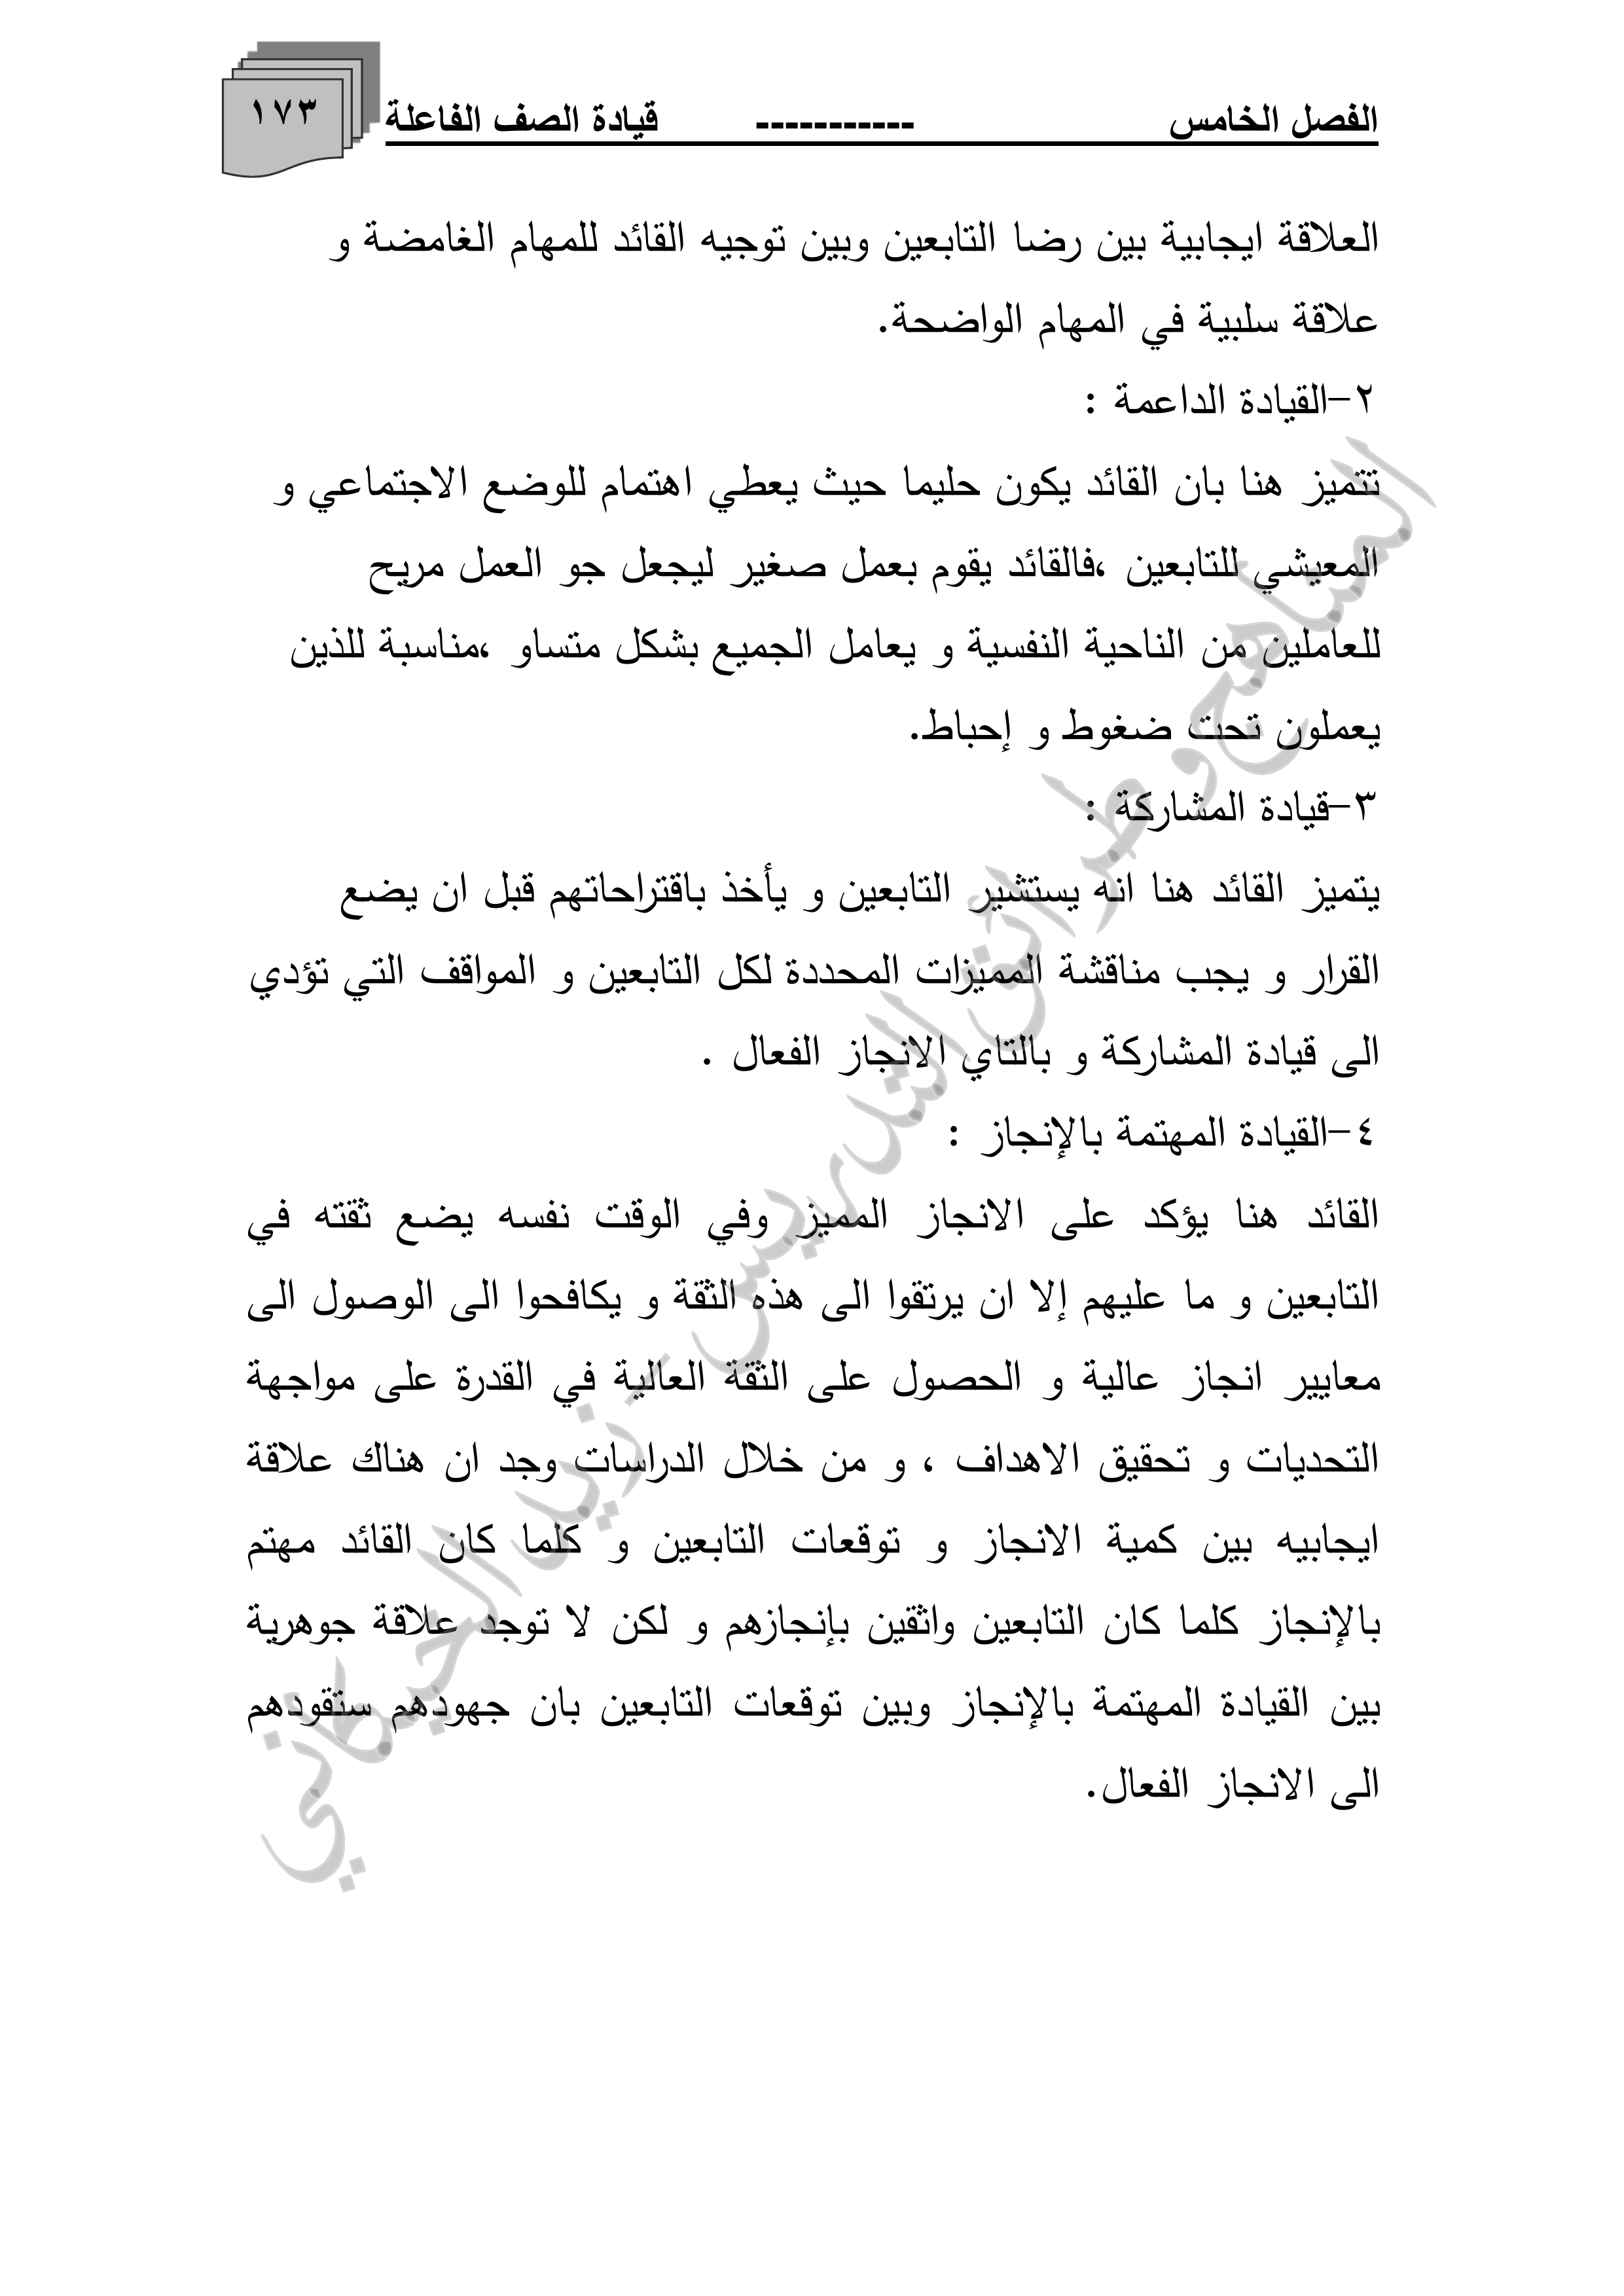 الفصل الخامس ----------- قيادة الصف الفاعلة ١٧٣
العلاقة ايجابية بين رضا التابعين وبين توجيه القائد للمهام الغامضة و
علاقة سلبية في المهام الواضحة.
٢-القيادة الداعمة :
تتميز هنا بان القائد يكون حليما حيث يعطي اهتمام للوضع الاجتماعي و
المعيشي للتابعين ،فالقائد يقوم بعمل صغير ليجعل جو العمل مريح
للعاملين من الناحية النفسية و يعامل الجميع بشكل متساو ،مناسبة للذين
يعملون تحت ضغوط و إحباط.
٣-قيادة المشاركة :
يتميز القائد هنا انه يستشير التابعين و يأخذ باقتراحاتهم قبل ان يضع
القرار و يجب مناقشة المميزات المحددة لكل التابعين و المواقف التي تؤدي
الى قيادة المشاركة و بالتاي الانجاز الفعال .
٤-القيادة المهتمة بالإنجاز :
القائد هنا يؤكد على الانجاز المميز وفي الوقت نفسه يضع ثقته في
التابعين و ما عليهم إلا ان يرتقوا الى هذه الثقة و يكافحوا الى الوصول الى
معايير انجاز عالية و الحصول على الثقة العالية في القدرة على مواجهة
التحديات و تحقيق الاهداف ، و من خلال الدراسات وجد ان هناك علاقة
ايجابيه بين كمية الانجاز و توقعات التابعين و كلما كان القائد مهتم
بالإنجاز كلما كان التابعين واثقين بإنجازهم و لكن لا توجد علاقة جوهرية
بين القيادة المهتمة بالإنجاز وبين توقعات التابعين بان جهودهم ستقودهم
الى الانجاز الفعال.
المناهج و طرائق التدريس - زيد الخيكاني